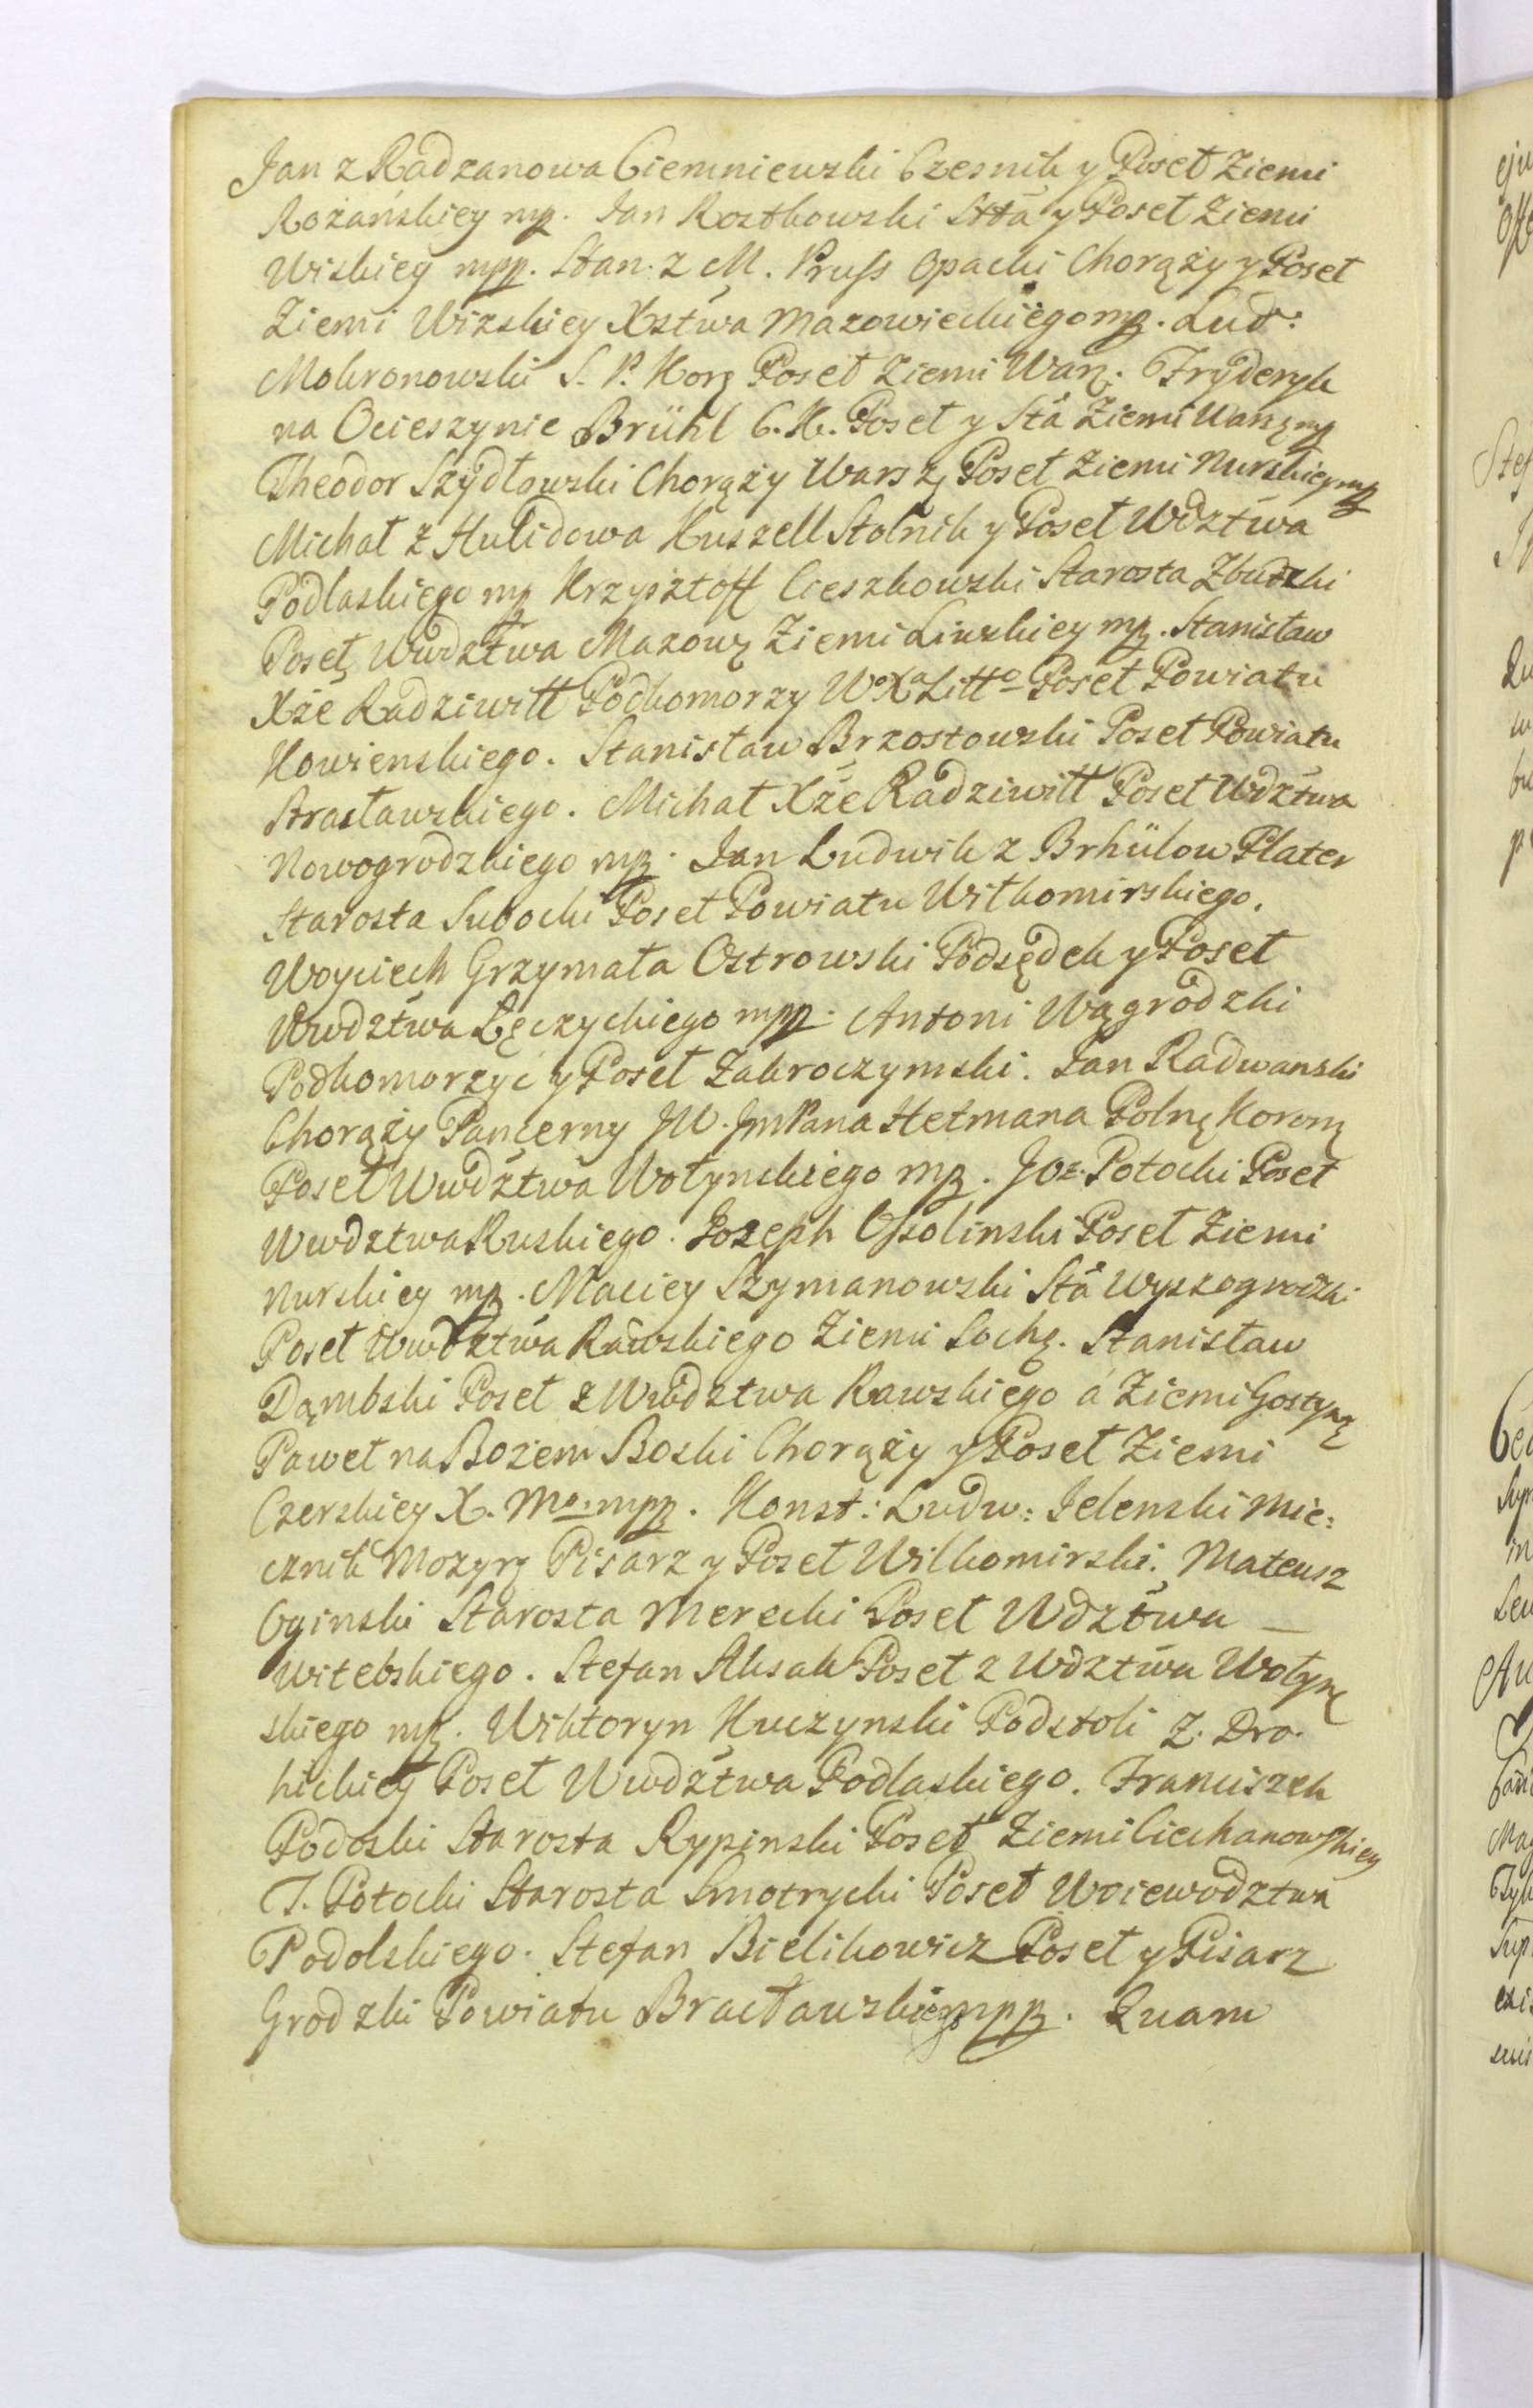 Jan z Radzanowa Ciemniewski Czesnik y Poseł Ziemi
Rożańskiey mp. Jan Rostkowski Stta y Poseł Ziemi
Wiskiey mpp. Stan. z M. Pruss Opacki Chorąży y Poseł
Ziemi Wizskiey Xsztwa Mazowieckiego mp. Lud:
Mokronowski S. P. Kor. Poseł Ziemi War. Fryderyk
na Ocieszynie Brühl C. K. Poseł y Sta Ziemi Warsz. mp
Theodor Szydłowski Chorąży Warsz. Poseł Ziemi Nurskiey mp
Michał z Hulidowa Kuszell Stolnik y Poseł Wdztwa
Podlaskiego mp Krzysztoff Cieszkowski Starosta Zbudzki
Poseł Wwdztwa Mazow. Ziemi Liwskiey mp. Stanisław
Xże Radziwiłł Podkomorzy Wo Xa Litto Poseł Powiatu
Kowienskiego. Stanisław Brzostowski Poseł Powiatu
Bracławskiego. Michał Xże Radziwiłł Poseł Wdztwa
Nowogrodzkiego mp. Jan Ludwik z Brhülow Plater
Starosta Subocki Poseł Powiatu Wiłkomirskiego.
Woyciech Grzymała Ostrowski Podsędek y Poseł
Wwdztwa Łęczyckiego mpp. Antoni Wągrodzki
Podkomorzyc y Poseł Zakroczymski. Jan Radwanski
Chorąży Pancerny JW. Jm Pana Hetmana Poln. Koron.
Poseł Wwdztwa Wołynskiego mp. Joz. Potocki Poseł
Wwdztwa Ruskiego. Jozeph Ossolinski Poseł Ziemi
Nurskiey mp. Maciey Szymanowski Sta Wyszogrodzki
Poseł Wwdztwa Rawskiego Ziemi Soch. Stanisław
Dąmbski Poseł z Wwdztwa Rawskiego a Ziemi Gostyn.
Paweł na Bożem Boski Chorąży y Poseł Ziemi
Czerskiey X. Mo. mpp. Konst: Ludw: Jelenski Mie:
cznik Mozyr. Pisarz y Poseł Wilkomirski. Mateusz
Oginski Starosta Merecki Poseł Wdztwa
Witebskiego. Stefan Aksak Poseł z Wdztwa Wołyn
skiego mp. Wiktoryn Kuczynski Podstoli Z. Dro.
hickiey Poseł Wwdztwa Podlaskiego. Franciszek
Podoski Starosta Rypinski Poseł Ziemi Ciechanowskiey
J. Potocki Starosta Smotrycki Poseł Woiewodztwa
Podolskiego. Stefan Bielikowicz Poseł y Pisarz
Grodzki Powiatu Bracławskiego mpp. Quam